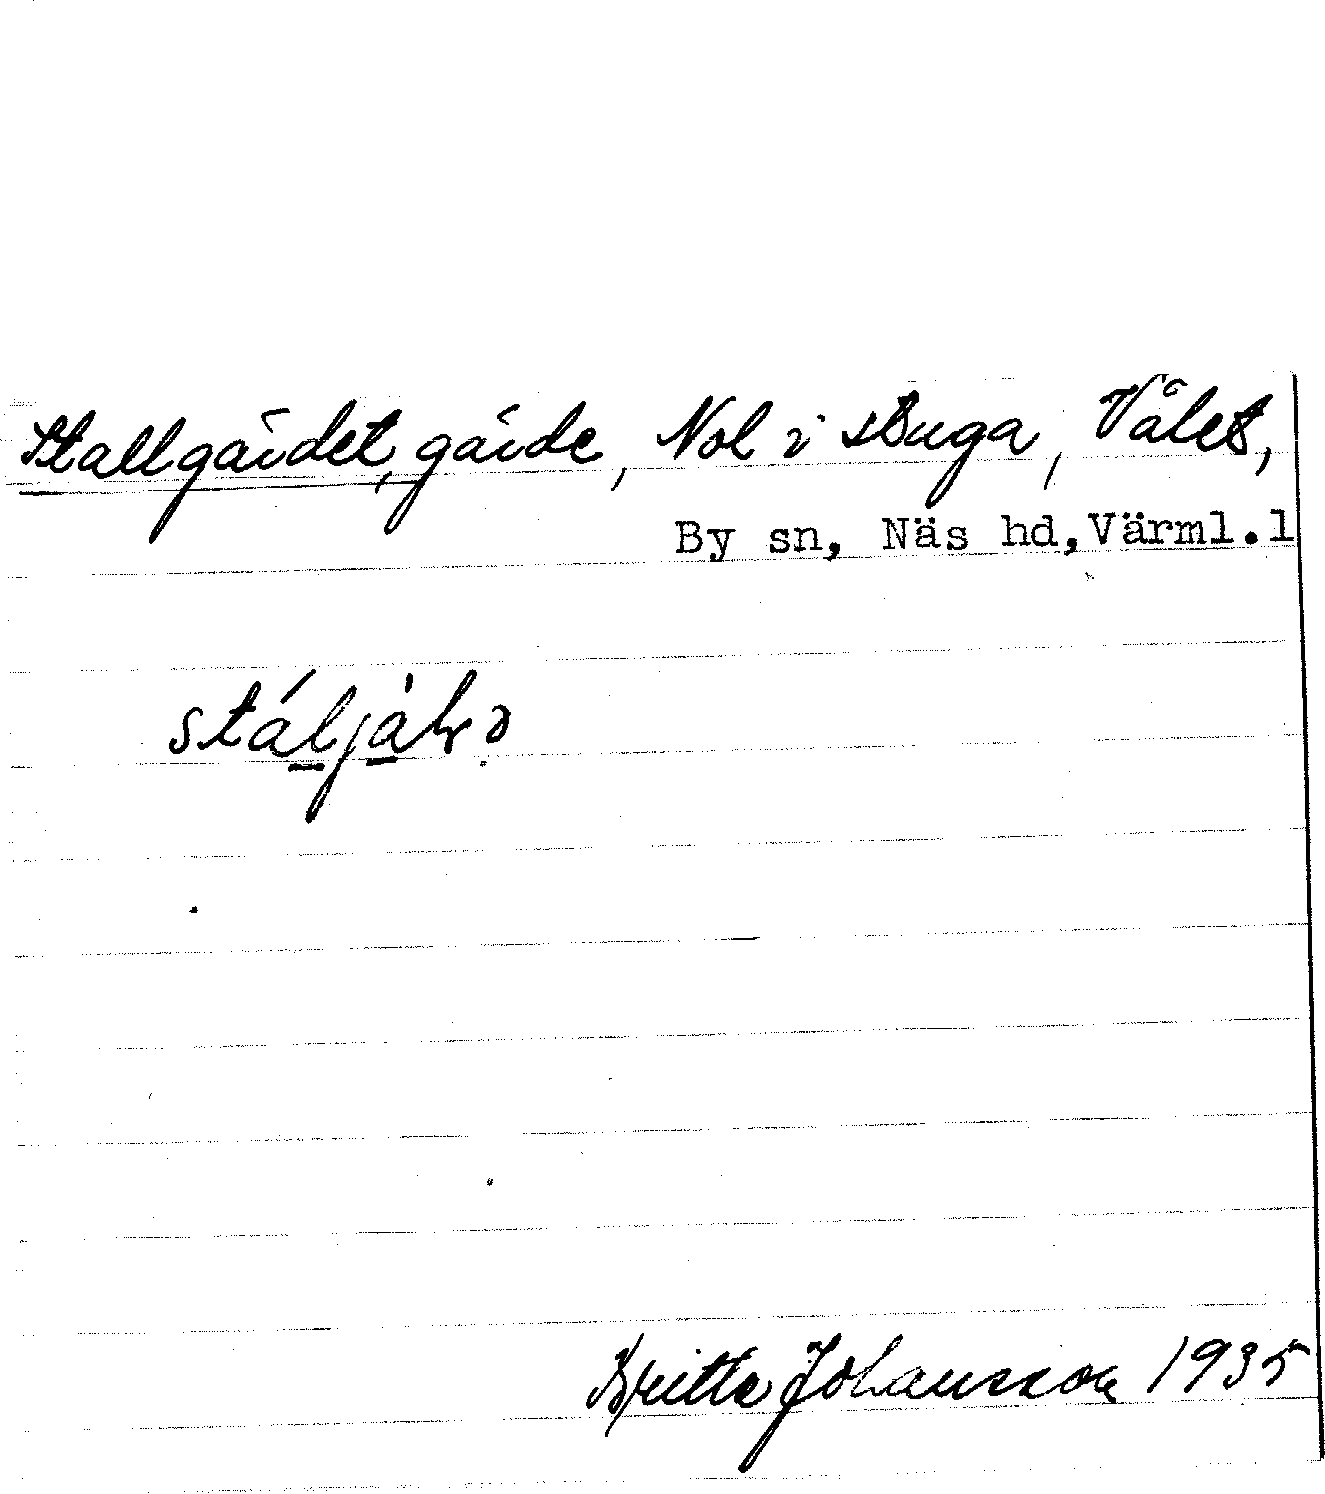 Stallgärdet, gärde, Nol i stuga, Vålet,
By sn, Näs hd, Värml.l
Britta Johansson 1935